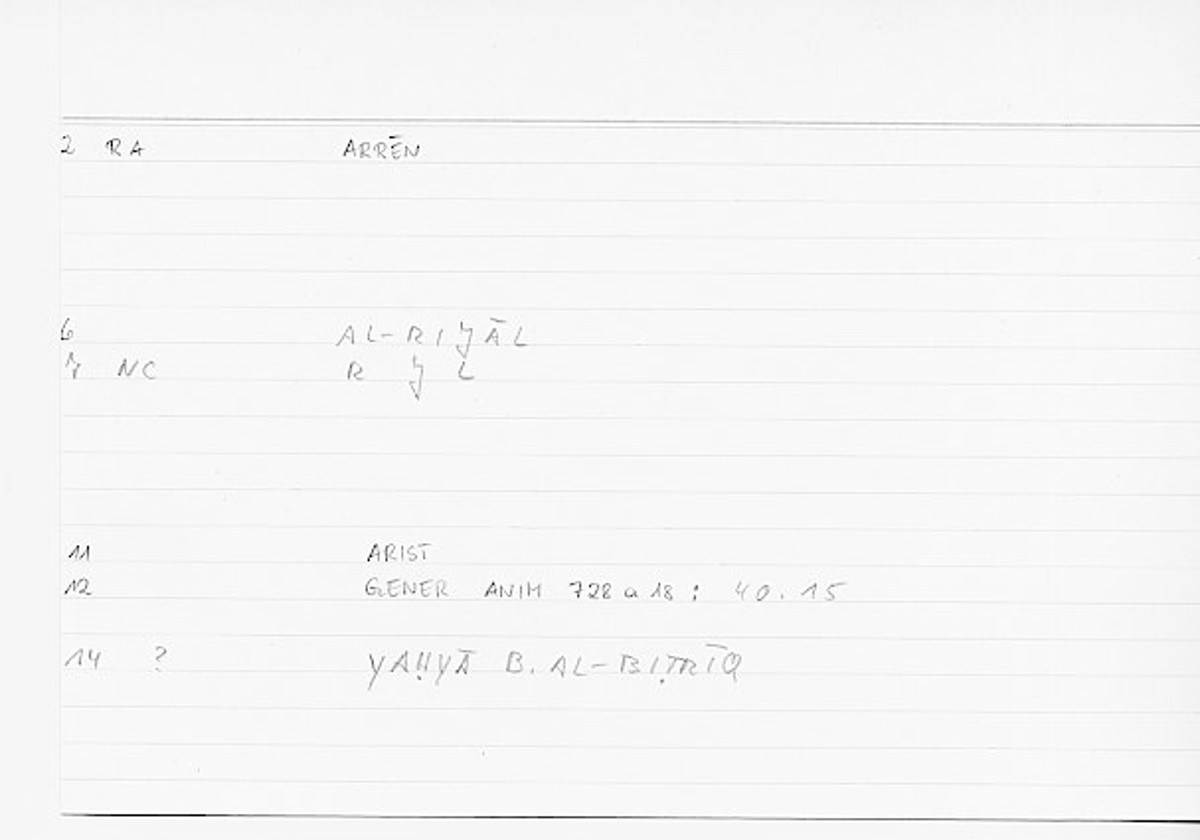 2 RA ARRĒN
6 AL-RIJĀL
7 NC R J L
11 ARIST
12 GENER ANIM 728 a 18 : 40.15
14 ? YAḤYĀ B. AL-BIṬRĪQ